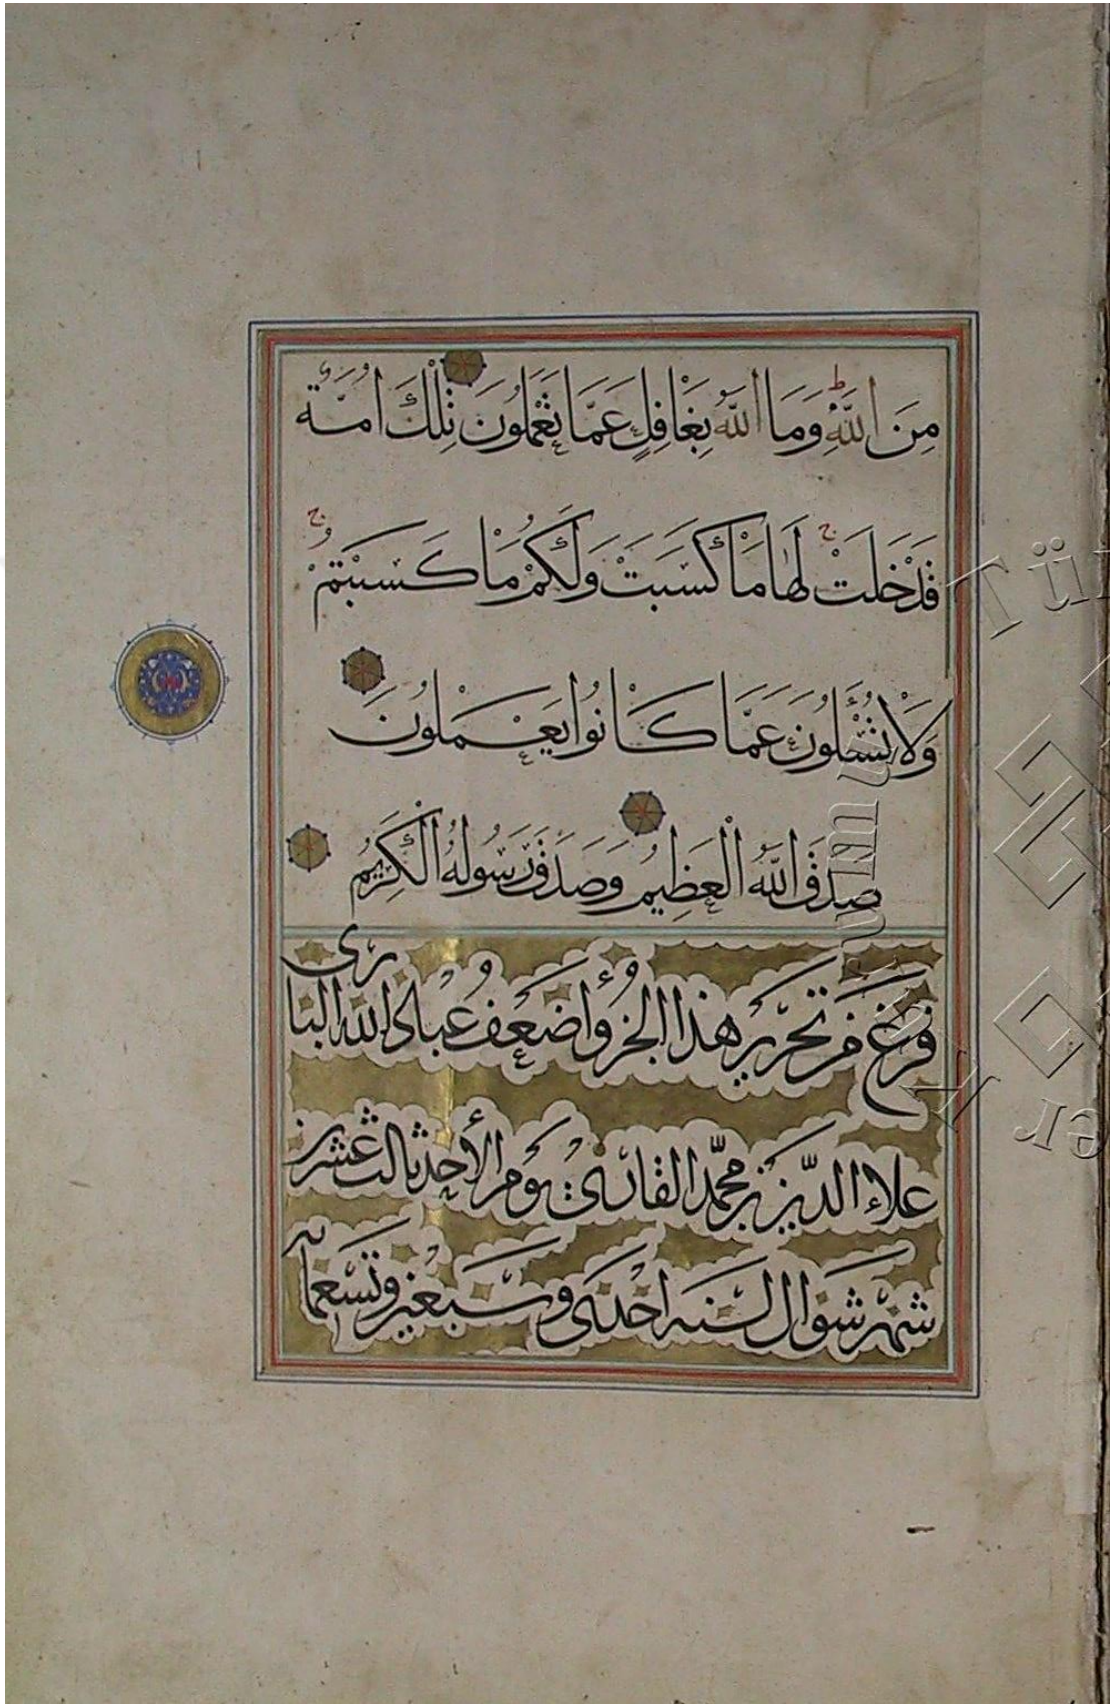 مِنَ اللَّهِ وَمَا اللَّهُ بِغَافِلٍ عَمَّا تَعْمَلُونَ تِلْكَ اُمَّةٌ
قَدْ خَلَتْ لَهَا مَا كَسَبَتْ وَلَكُمْ مَا كَسَبْتُمْ
وَلَا تُسْئَلُونَ عَمَّا كَانُوا يَعْمَلُونَ
صَدَقَ اللَّهُ الْعَظِيمُ وَصَدَقَ رَسُولُهُ الْكَرِيمُ
فرغ من تحرير هذا الجزؤ اضعف عباد الله الباري
علاء الدين بن محمد القارئ يوم الأحد ثالث عشرين
شهر شوال لسنه احدى وسبعين وتسعمأ